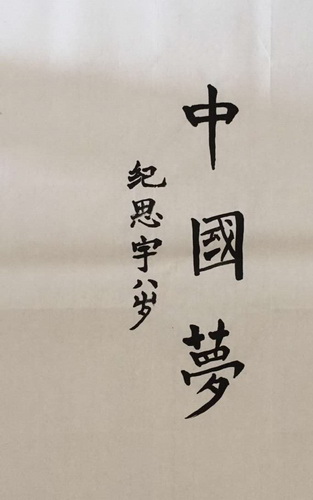 中國夢
纪思宇八岁